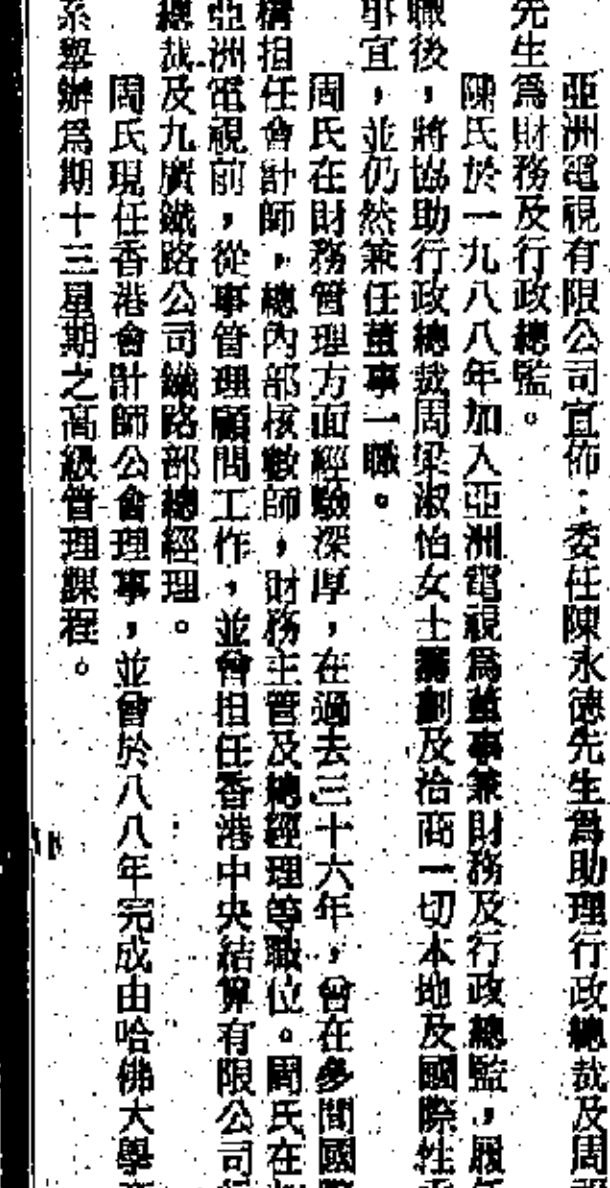 亞洲電視有限公司宣佈：委任陳永德先生爲助理行政總裁及周
先生爲財務及行政總監。
陳氏於一九八八年加入亞洲電視爲董事兼財務及行政總監，履
職後，將協助行政總裁周梁淑怡女士籌劃及洽商一切本地及國際性
事宜，並仍然兼任董事一職。
周氏在財務管理方面經驗深厚，在過去三十六年，曾在多間國
構担任會計師，總內部核數師，財務主管及總經理等職位。周氏在
亞洲電視前，從事管理顧問工作，並曾担任香港中央結算有限公司
總裁及九廣鐵路公司鐵路部總經理。
周氏現任香港會計師公會理事，並曾於八八年完成由哈佛大學
系舉辦爲期十三星期之高級管理課程。